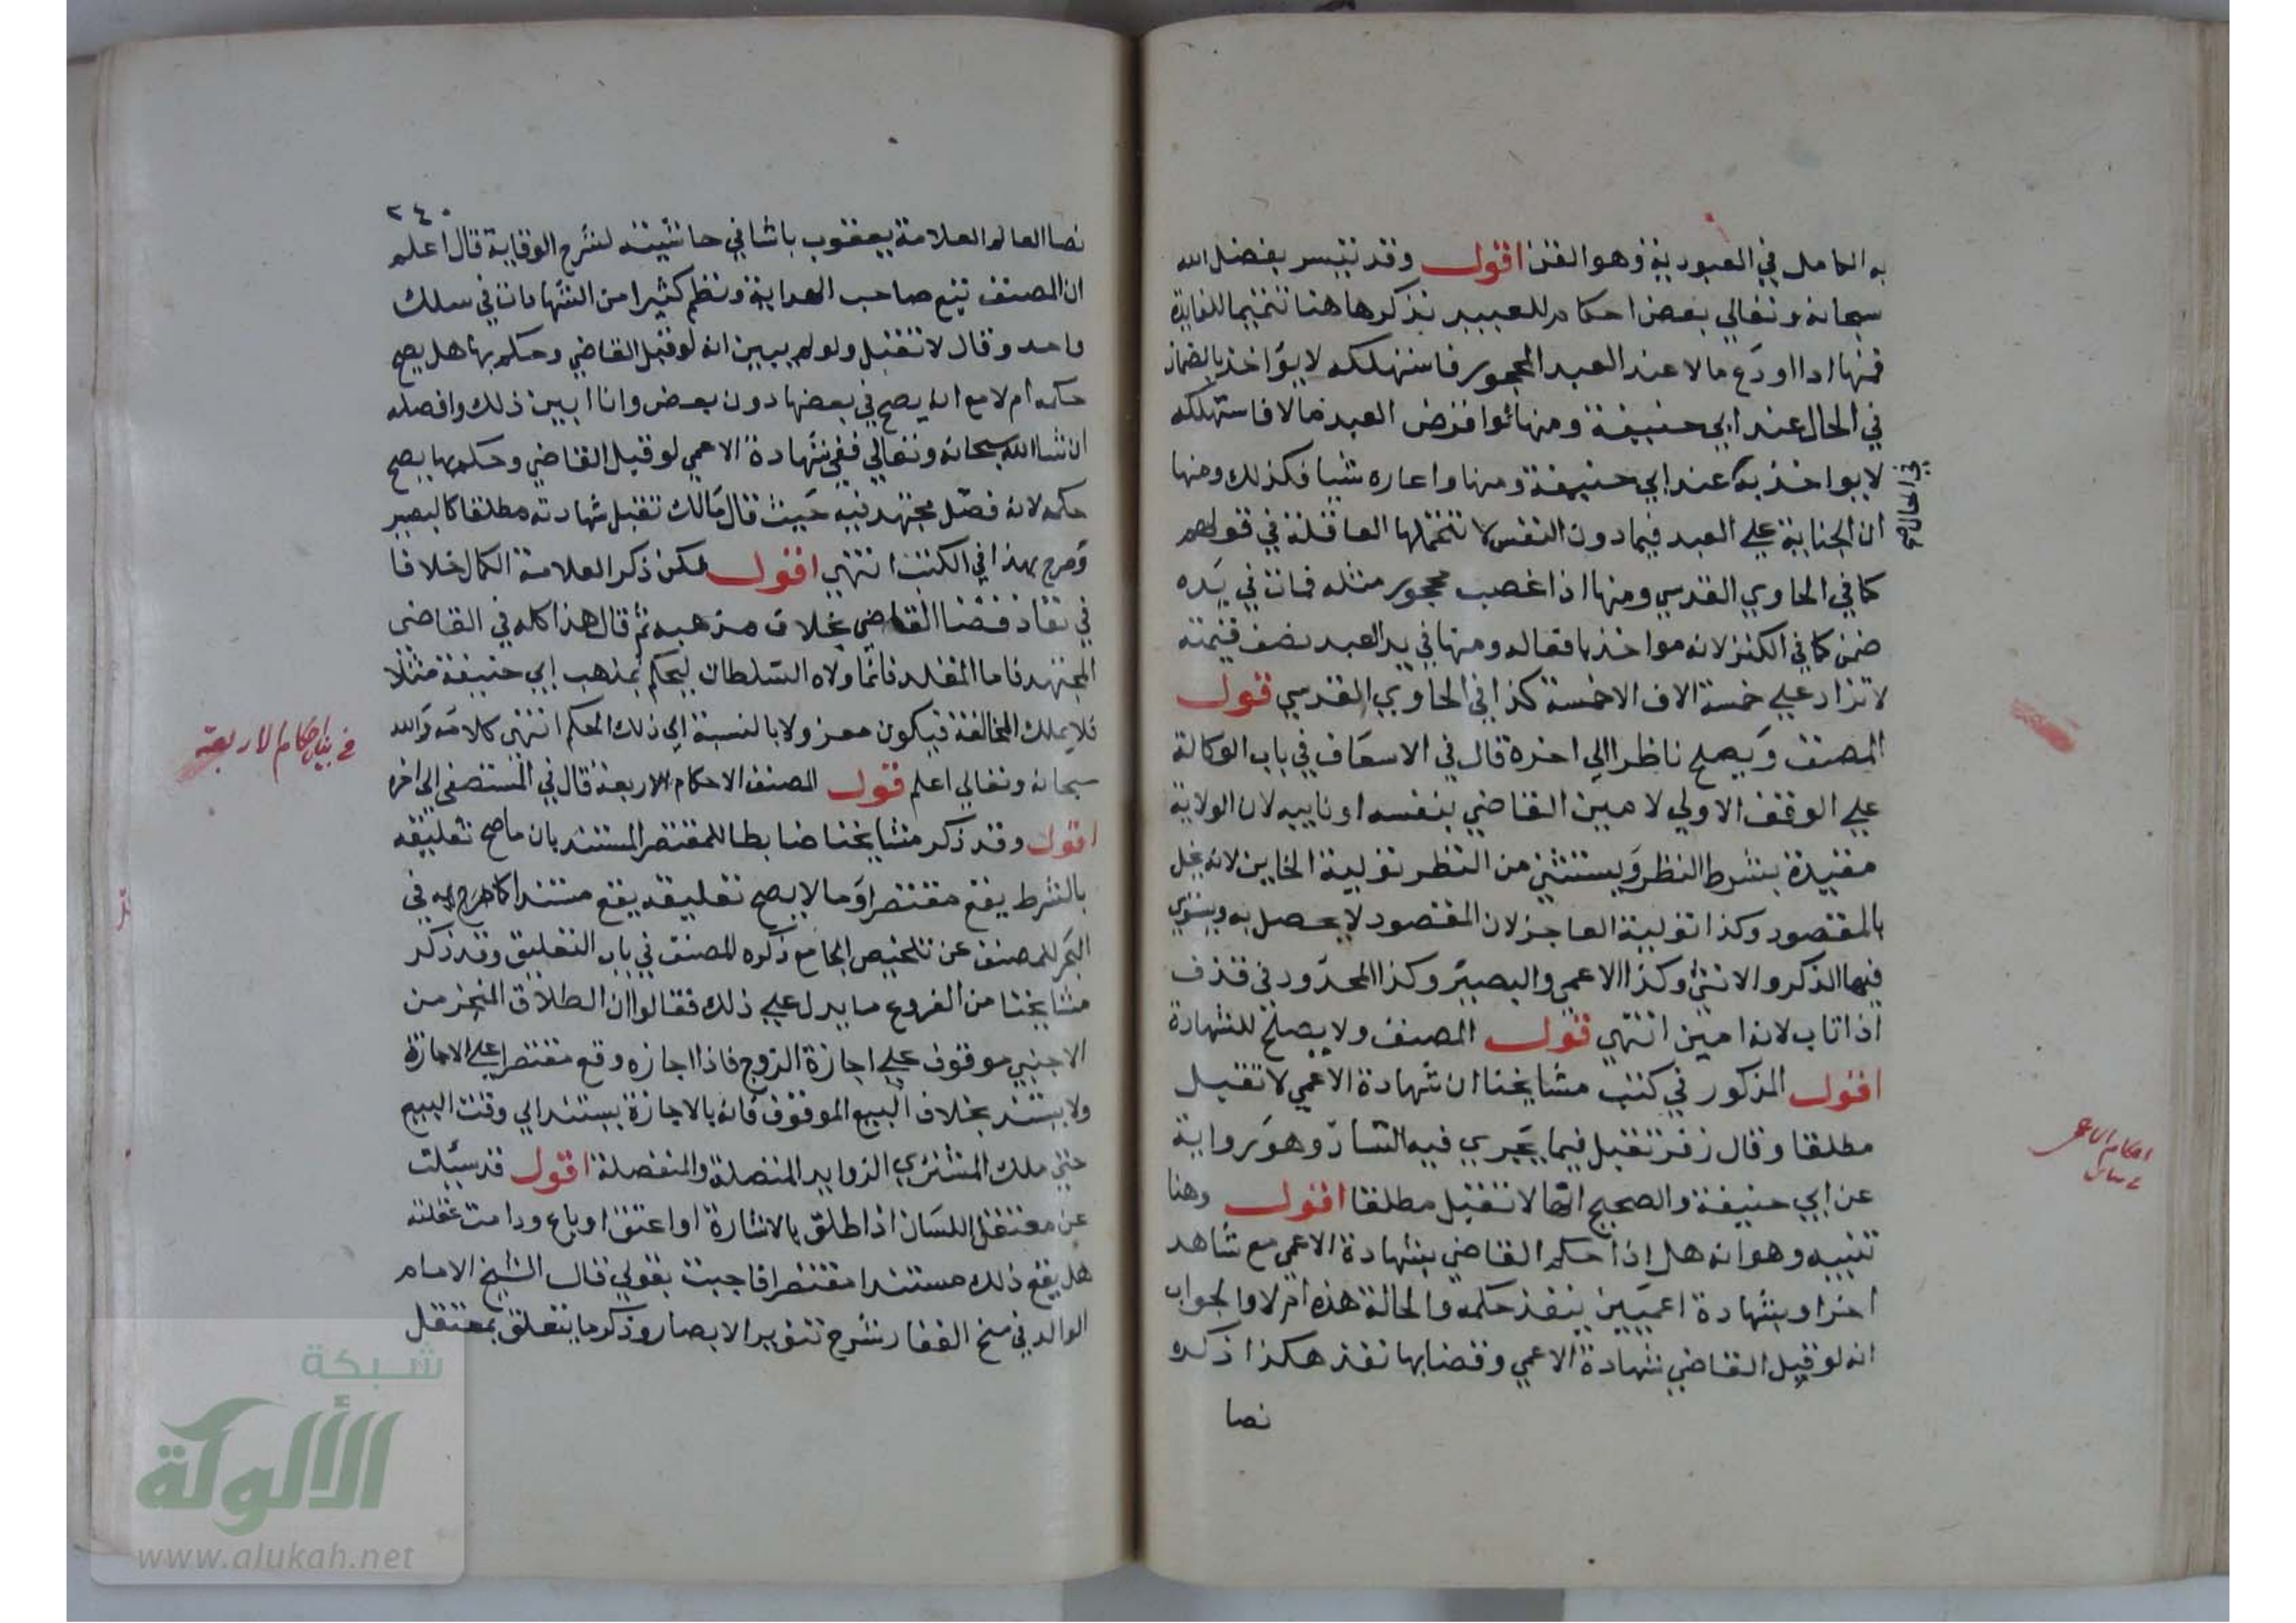 به الكامل في العبودية وهو القن اقول وقد تيسر بفضل الله
سبحانه وتعالي بعض احكام للعبيد نذكرها هنا تتميما للفايدة
فمنها اذا اودع مالا عند العبد المحجور فاستهلكه لا يؤاخذ بالضمان
في الحال عند ابي حنيفة ومنها لو اقرض العبد مالا فاستهلكه
لا يواخذ به عند ابي حنيفة ومنها واعاره شيا فكذلك ومنها
في الحال صح
ان الجناية علي العبد فيما دون النفس لا تتحملها العاقلة في قولهم
كما في الحاوي القدسي ومنها اذا غصب محجور مثله فمات في يده
ضمن كما في الكنز لانه مواخذ بافعاله ومنها في يد العبد نصف قيمته
لا تزاد علي خمسة الاف الاخمسة كذا في الحاوي القدسي قول
المصنف ويصلح ناظرا الي اخره قال في الاسعاف في باب الوكالة
علي الوقف الاولي لا مين القاضي بنفسه او نايبه لان الولاية
مقيدة بشرط النظر ويستثني من النظر تولية الخاين لانه يخل
بالمقصود وكذا تولية العاجز لان المقصود لا يحصل به ويستوي
فيها الذكر والانثي وكذا الاعمي والبصير وكذا المحدود في قذف
اذا تاب لانه امين انتهي قول المصنف ولا يصلح للشهادة
اقول المذكور في كتب مشايخنا ان شهادة الاعمي لا تقبل
مطلقا وقال زفر تقبل فيما يجري فيه التسار وهو رواية
احكام الاعمي
عن ابي حنيفة والصحيح انها لا تقبل مطلقا اقول وهنا
تنبيه وهو انه هل اذا حكم القاضي بشهادة الاعمي مع شاهد
اخر او بشهادة اعميين ينفذ حكمه والحالة هذه ام لا والجواب
انه لو قبل القاضي شهادة الاعمي وقضا بها نفذ هكذا ذكره
نصا
٢٤٠
نصا العالم العلامة يعقوب باشا في حاشيته لشرح الوقاية قال اعلم
ان المصنف تبع صاحب الهداية ونظم كثيرا من الشهادات في سلك
واحد وقال لا تقبل ولو لم يبين انه لو قبل القاضي وحكم بها هل يصح
حكمه ام لا مع انه يصح في بعضها دون بعض وانا ابين ذلك وافصله
ان شا الله سبحانه وتعالي ففي شهادة الاعمي لو قبل القاضي وحكم بها يصح
حكمه لانه فصل مجتهد فيه حيث قال مالك تقبل شهادته مطلقا كالبصير
وصرح بهذا في الكتب انتهي اقول لكن ذكر العلامة الكمال خلافا
في نفاذ قضا القاضي بخلاف مذهبه ثم قال هذا كله في القاضي
المجتهد فاما المقلد فانما ولاه السلطان ليحكم بمذهب ابي حنيفة مثلا
فلا يملك المخالفة فيكون معزولا بالنسبة الي ذلك الحكم انتهي كلامه والله
في بيان احكام الاربعة
سبحانه وتعالي اعلم قول المصنف الاحكام الاربعة قال في المستصفي الي اخره
اقول وقد ذكر مشايخنا ضابطا للمقتصر المستند بان ما صح تعليقه
بالشرط يقع مقتصرا وما لا يصح تعليقه يقع مستندا كما صرح به في
البحر للمصنف عن تلخيص الجامع ذكره المصنف في باب التعليق وقد ذكر
مشايخنا من الفروع ما يدل علي ذلك فقالوا ان الطلاق المنجز من
الاجنبي موقوف علي اجازة الزوج فاذا اجازه وقع مقتصرا علي الاجازة
ولا يستند بخلاف البيع الموقوف فانه بالاجازة يستند الي وقت البيع
حتي ملك المشتري الزوايد المتصلة والمنفصلة اقول قد سئلت
عن معتقل اللسان اذا طلق بالاشارة او اعتق او باع ودامت عقلته
هل يقع ذلك مستندا مقتصرا فاجبت بقولي قال الشيخ الامام
الوالد في منح الغفار شرح تنوير الابصار وذكر ما يتعلق بمعتقل
شبكة
الألوكة
www.alukah.net